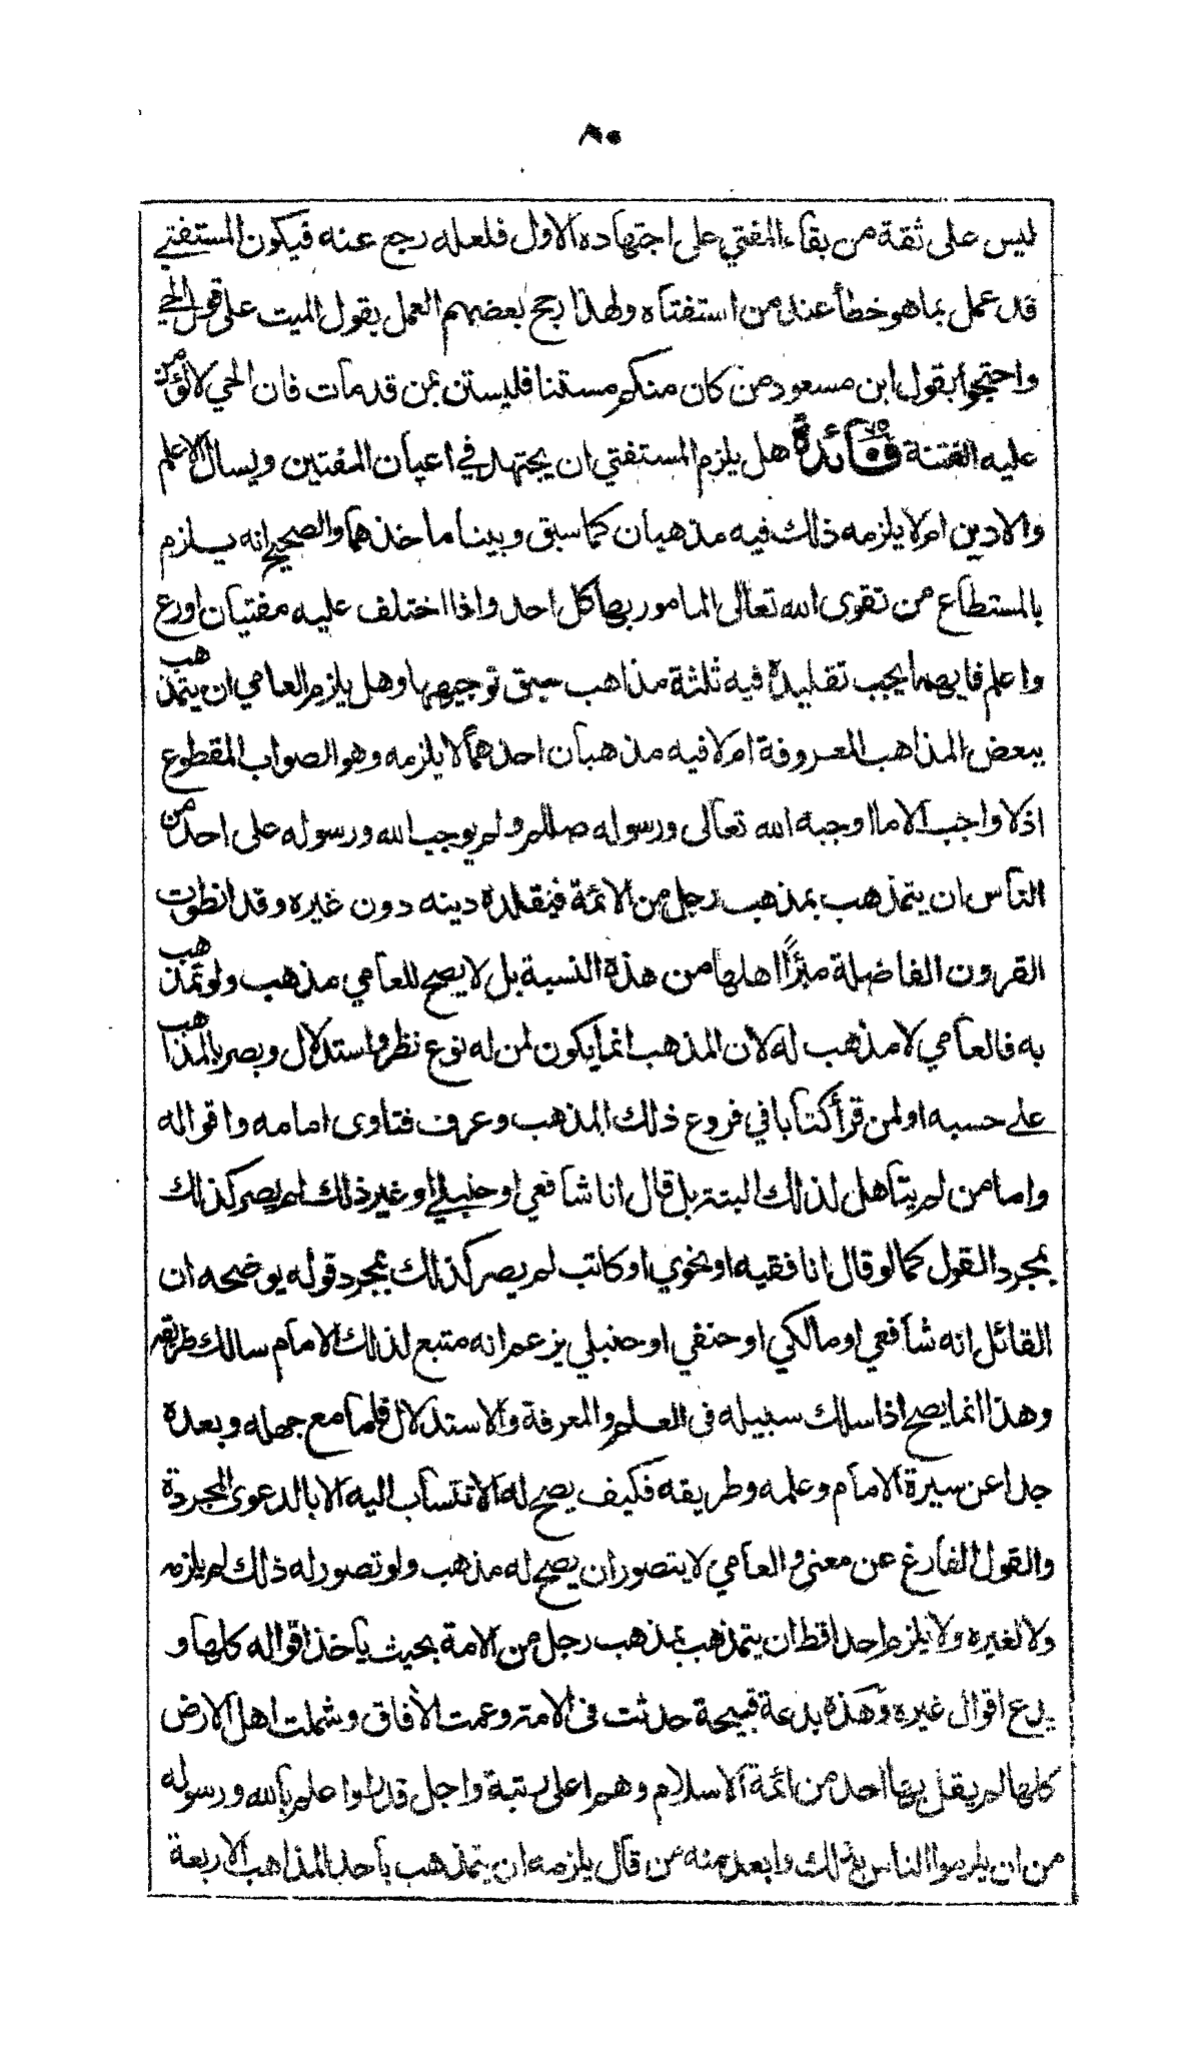 ٨٠
ليس على ثقة من بقاء المفتي على اجتهاده الاول فلعله رجع عنه فيكون المستفتي
قد عمل بما هو خطأ عند من استفتاه ولهذا رجح بعضهم العمل بقول الميت على قول الحي
واحتجوا بقول ابن مسعود من كان منكم مستنا فليستن بمن قد مات فان الحي لا تؤمن
عليه الفتنة فائدة ٧٥ هل يلزم المستفتي ان يجتهد في اعيان المفتين ويسال الاعلم
والادين ام لا يلزمه ذلك فيه مذهبان كما سبق وبينا ماخذهما والصحيح انه يلزم
بالمستطاع من تقوى الله تعالى المامور بها كل احد واذا اختلف عليه مفتيان اورع
واعلم فايهما يجب تقليده فيه ثلثة مذاهب سبق توجيهها وهل يلزم العامي ان يتمذهب
ببعض المذاهب المعروفة ام لا فيه مذهبان احدهما لا يلزمه وهو الصواب المقطوع
اذ لا واجب الا ما اوجبه الله تعالى ورسوله صللم ولم يوجب الله ورسوله على احد من
الناس ان يتمذهب بمذهب رجل من الائمة فيقلده دينه دون غيره وقد انطوت
القرون الفاضلة مبرًّا اهلها من هذه النسبة بل لا يصح للعامي مذهب ولو تمذهب
به فالعامي لا مذهب له لان المذهب انما يكون لمن له نوع نظر واستدلال وبصر بالمذاهب
على حسبه او لمن قرأ كتابا في فروع ذلك المذهب وعرف فتاوى امامه واقواله
واما من لم يتاهل لذلك البتة بل قال انا شافعي او حنبلي او غير ذلك لم يصر كذلك
بمجرد القول كما لو قال انا فقيه او نحوي او كاتب لم يصر كذلك بمجرد قوله يوضحه ان
القائل انه شافعي او مالكي او حنفي او حنبلي يزعم انه متبع لذلك الامام سالك طريقه
وهذا انما يصح اذا سلك سبيله في العلم والمعرفة والاستدلال فاما مع جهله وبعده
جدا عن سيرة الامام وعلمه وطريقه فكيف يصح له الانتساب اليه الا بالدعوى المجردة
والقول الفارغ عن معنى والعامي لا يتصور ان يصح له مذهب ولو تصور له ذلك لم يلزمه
ولا لغيره ولا يلزم احدا قط ان يتمذهب بمذهب رجل من الامة بحيث يأخذ اقواله كلها و
يدع اقوال غيره وهذه بدعة قبيحة حدثت في الامة وعمت الآفاق وشملت اهل الارض
كلها لم يقل بها احد من ائمة الاسلام وهم اعلى رتبة واجل قدرا واعلم بالله ورسوله
من ان يلزموا الناس بذلك وابعد منه من قال يلزمه ان يتمذهب بأحد المذاهب الاربعة